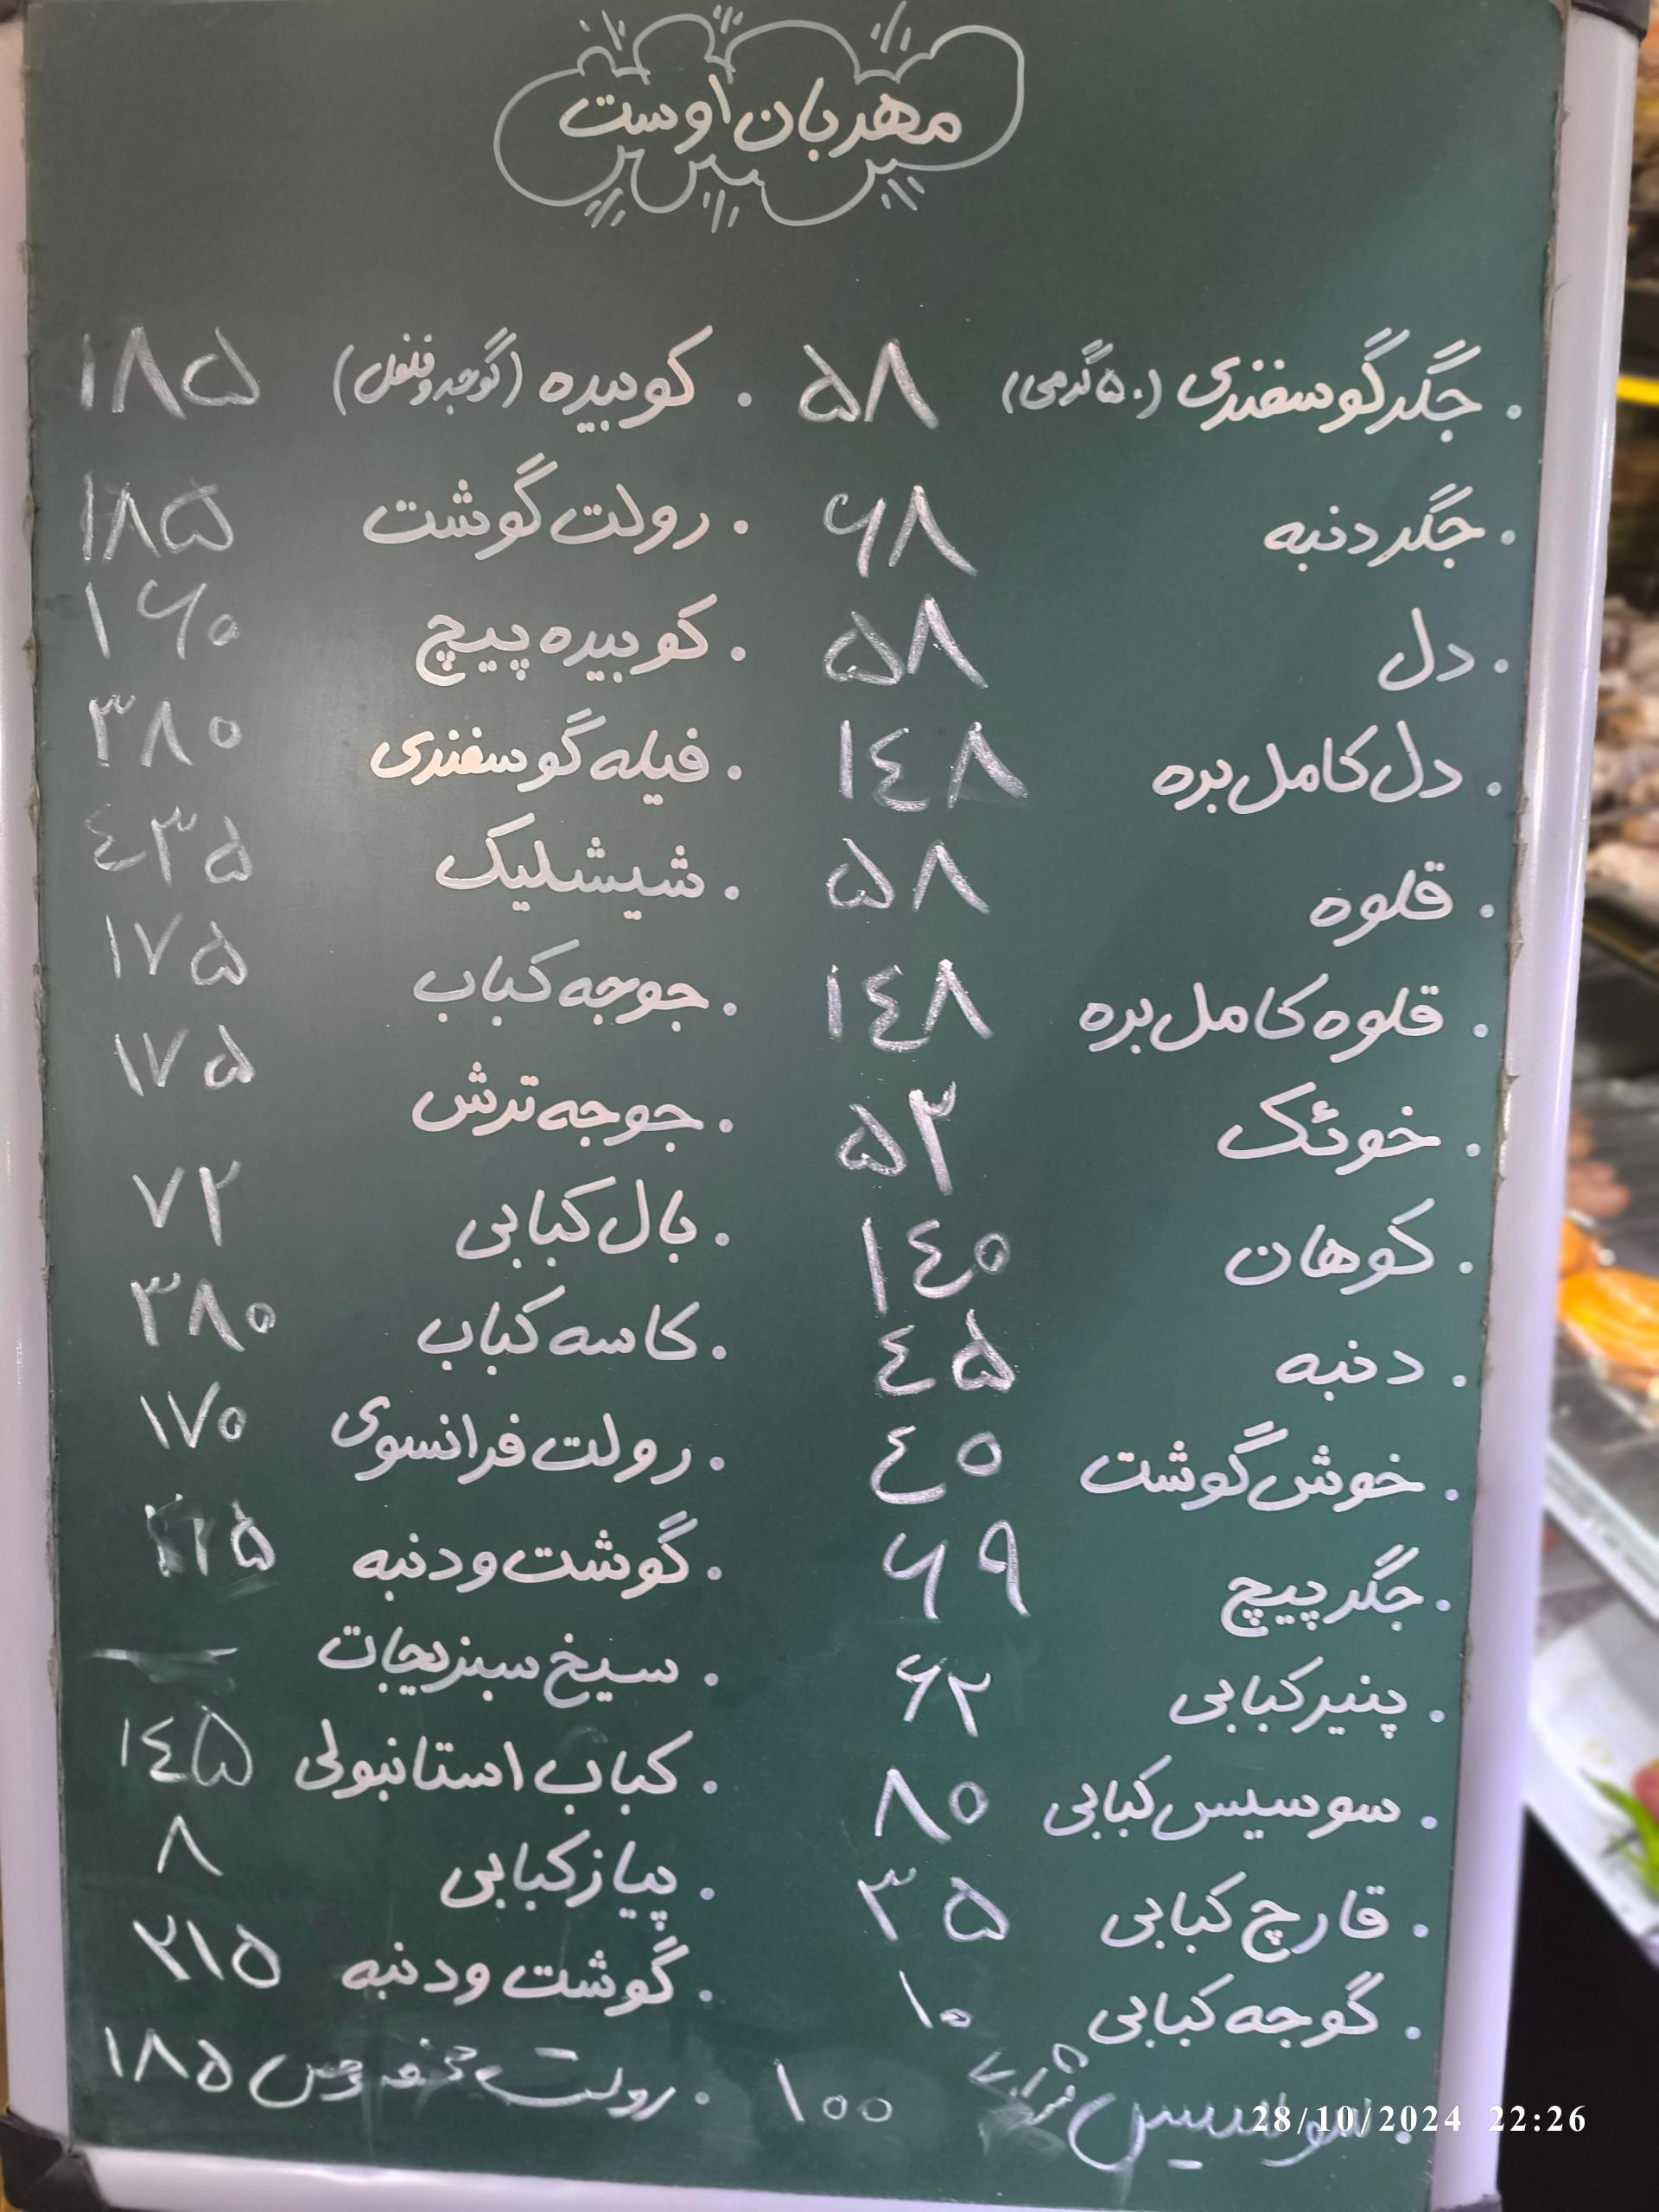 مهربان اوست
. جگر گوسفندی (۵۰ گرمی) ۵۸
. جگر دنبه ۶۸
. دل ۵۸
. دل کامل بره ۱٤۸
. قلوه ۵۸
. قلوه کامل بره ۱٤۸
. خوئک ۵۳
. کوهان ۱٤۰
. دنبه ٤۵
. خوش گوشت ٤۰
. جگر پیچ ۶۹
. پنیر کبابی ۶۲
. سوسیس کبابی ۸۰
. قارچ کبابی ۳۵
. گوجه کبابی ۱۰
. سوسیس ۱۰۰
. کوبیده (گوجه و فلفل) ۱۸۵
. رولت گوشت ۱۸۵
. کوبیده پیچ ۱۶۰
. فیله گوسفندی ۳۸۰
. شیشلیک ٤۳۵
. جوجه کباب ۱۷۵
. جوجه ترش ۱۷۵
. بال کبابی ۷۲
. کاسه کباب ۳۸۰
. رولت فرانسوی ۱۷۰
. گوشت و دنبه
. سیخ سبزیجات —
. کباب استانبولی ۱٤۵
. پیاز کبابی ۸
. گوشت و دنبه ۲۱۵
. رولت مخصوص ۱۸۵
28/10/2024 22:26